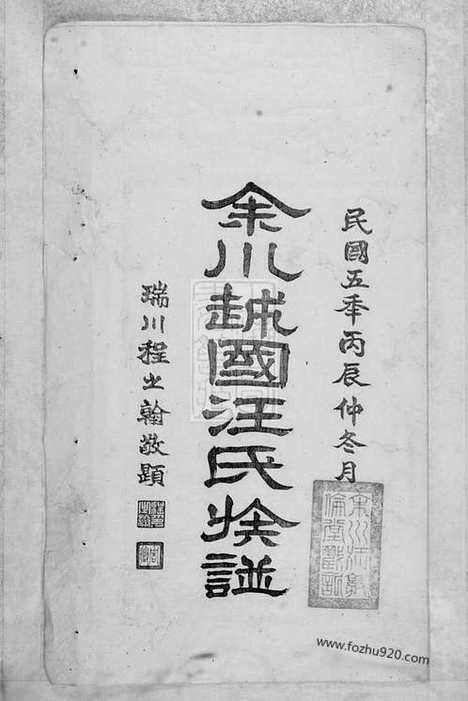 民國五季丙辰仲冬月
余川越國汪氏族譜
瑞川程之翰敬題
余川汪氏
倫堂戳記
www.fozhu920.com